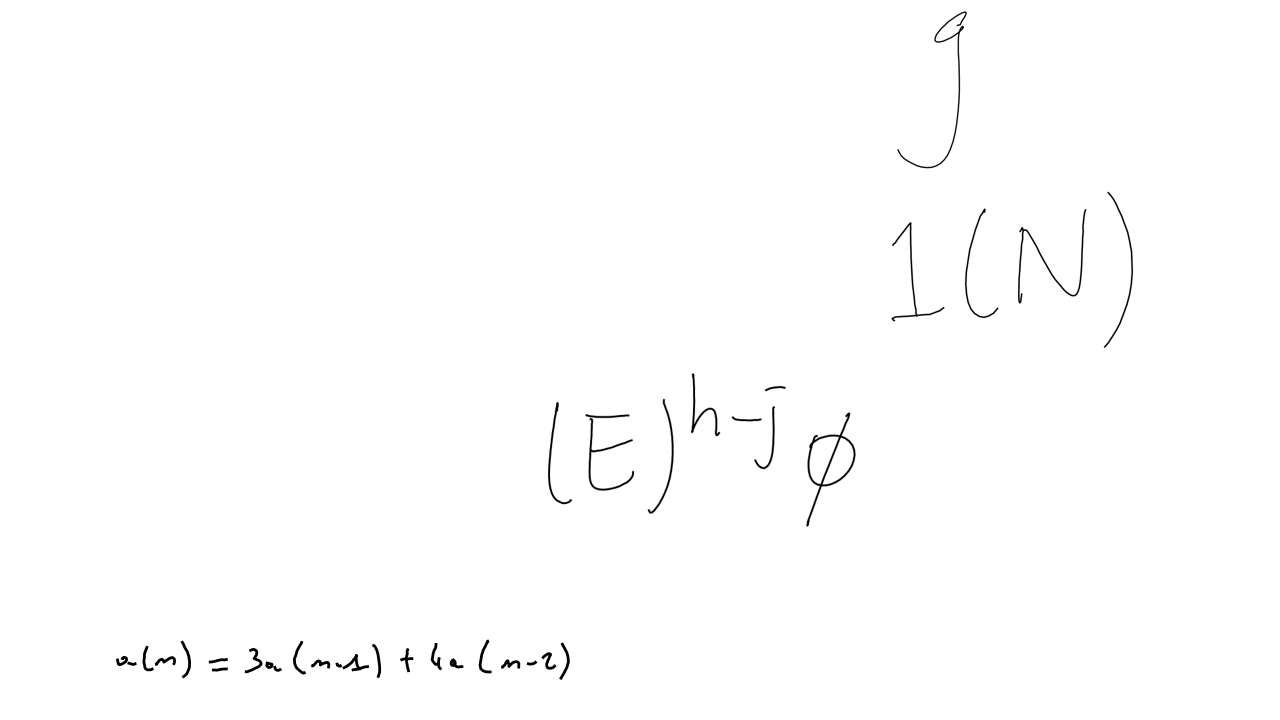 g
1(N)
(E)^{h-j} ϕ
a(n) = 3a(n-1) + 4a(n-2)